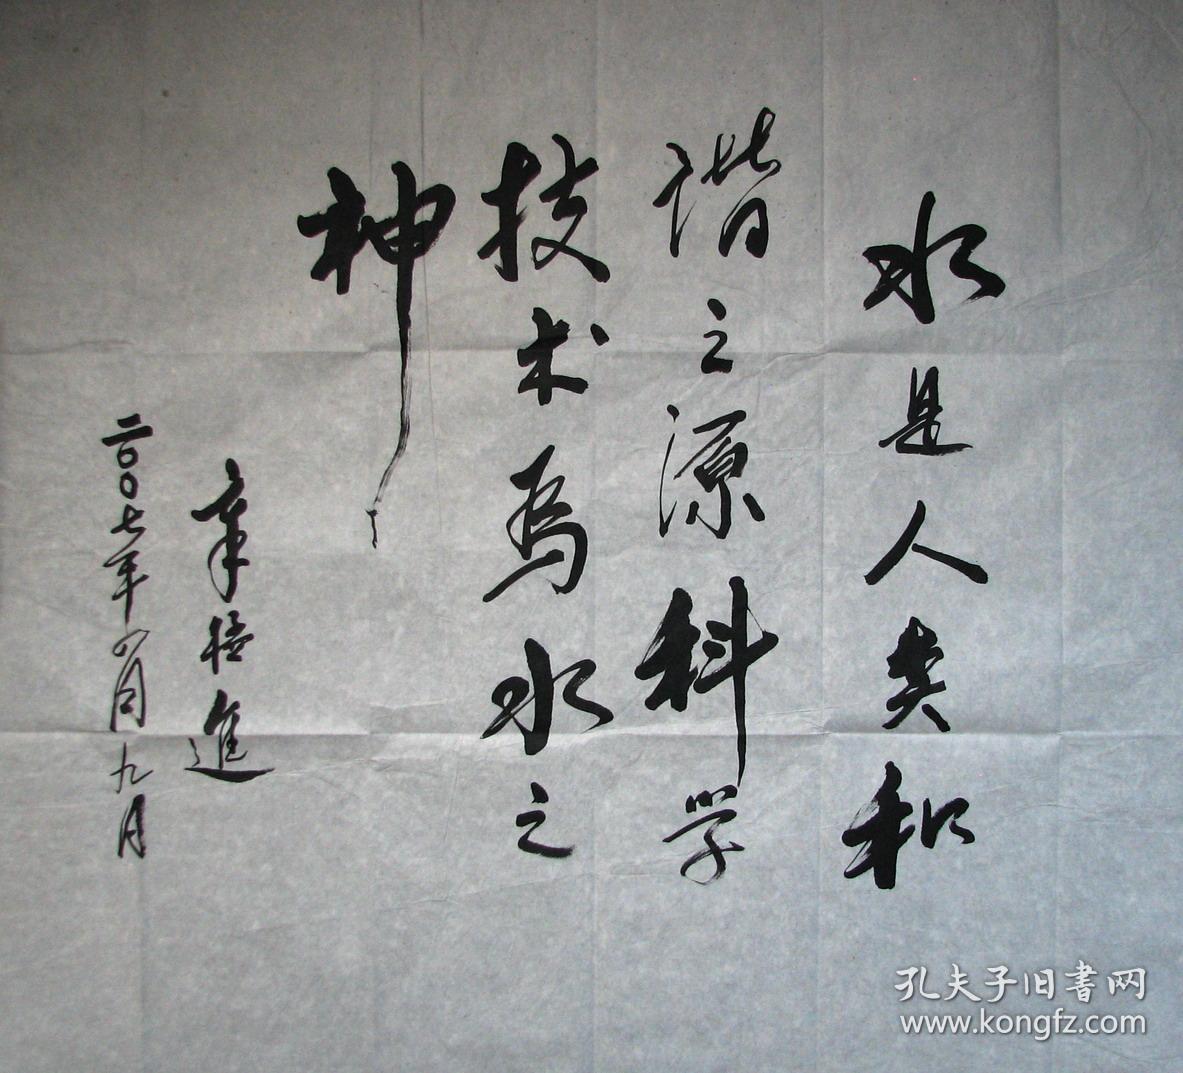 水是人类和
谐之源科学
技术為水之
神
進
二〇〇七年月九日
孔夫子旧書网
www.kongfz.com